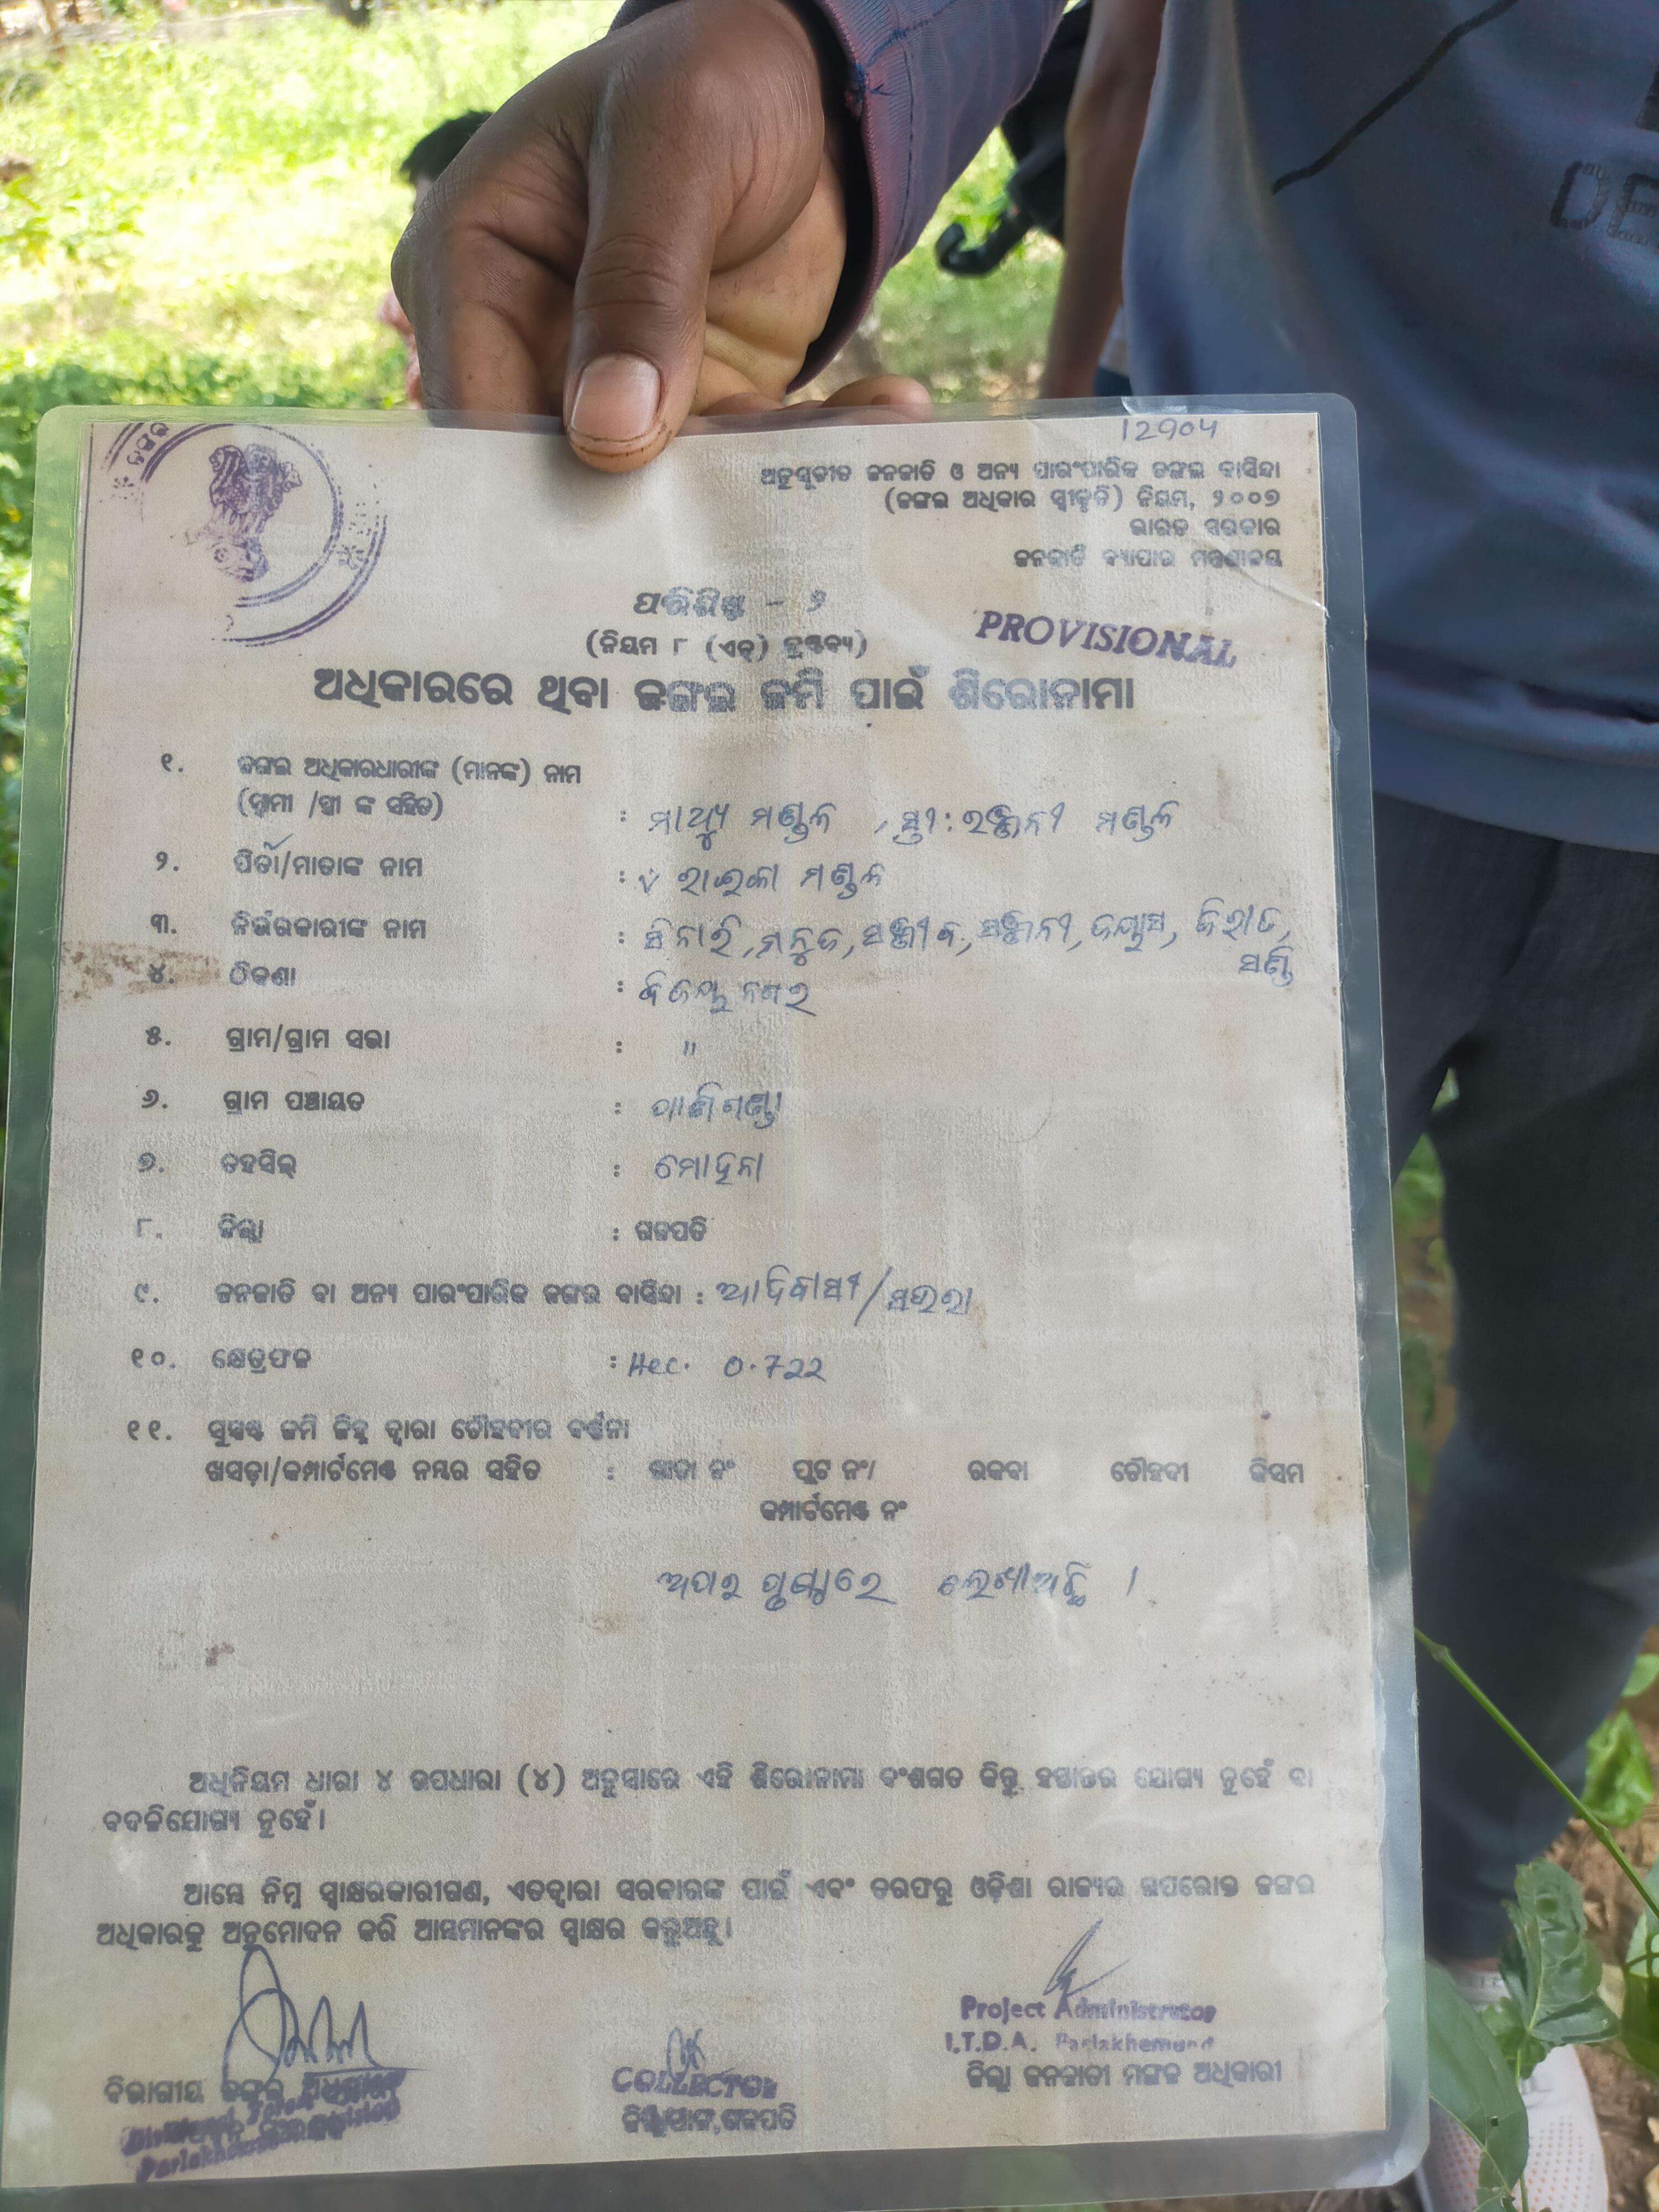 12904
ଅନୁସୂଚୀତ ଜନଜାତି ଓ ଅନ୍ୟ ପାରଂପାରିକ ଜଙ୍ଗଲ ବାସିନ୍ଦା
(ଜଙ୍ଗଲ ଅଧିକାର ସ୍ୱୀକୃତି) ନିୟମ, ୨୦୦୭
ଭାରତ ସରକାର
ଜନଜାତି ବ୍ୟାପାର ମନ୍ତ୍ରଣାଳୟ
ପରିଶିଷ୍ଟ - ୨
(ନିୟମ ୮ (ଏଚ୍) ଦ୍ରଷ୍ଟବ୍ୟ)
PROVISIONAL
ଅଧିକାରରେ ଥିବା ଜଙ୍ଗଲ ଜମି ପାଇଁ ଶିରୋନାମା
୧. ଜଙ୍ଗଲ ଅଧିକାରଧାରୀଙ୍କ (ମାନଙ୍କ) ନାମ
(ସ୍ୱାମୀ /ସ୍ତ୍ରୀ ଙ୍କ ସହିତ) : ମାଥ୍ୟୁ ମଣ୍ଡଳ , ସ୍ତ୍ରୀ : ରଞ୍ଜିନୀ ମଣ୍ଡଳ
୨. ପିତା/ମାତାଙ୍କ ନାମ : ରାଇଜା ମଣ୍ଡଳ
୩. ନିର୍ଭରକାରୀଙ୍କ ନାମ : ସିନାରି, ମନୁଜ, ସଞ୍ଜୀବ, ସଞ୍ଜିନୀ, ଜୟାସ, କିରାତ,
ସଣ୍ଡି
୪. ଠିକଣା : ବିଜୟ ନଗର
୫. ଗ୍ରାମ/ଗ୍ରାମ ସଭା : "
୬. ଗ୍ରାମ ପଞ୍ଚାୟତ :
୭. ତହସିଲ୍ : ମୋହନା
୮. ଜିଲ୍ଲା : ଗଜପତି
୯. ଜନଜାତି ବା ଅନ୍ୟ ପାରଂପାରିକ ଜଙ୍ଗଲ ବାସିନ୍ଦା : ଆଦିବାସୀ/ସଉରା
୧୦. କ୍ଷେତ୍ରଫଳ : Hec. 0.722
୧୧. ସୁସ୍ପଷ୍ଟ ଜମି ଚିହ୍ନ ଦ୍ୱାରା ଚୌହଦୀର ବର୍ଣ୍ଣନା
ଖସଡ଼ା/କମ୍ପାର୍ଟମେଣ୍ଟ ନମ୍ବର ସହିତ : ଖାତା ନଂ ପ୍ଲଟ ନଂ/ ରକବା ଚୌହଦୀ କିସମ
କମ୍ପାର୍ଟମେଣ୍ଟ ନଂ
ଅପର ପୃଷ୍ଠାରେ ଲେଖାଅଛି ।
ଅଧିନିୟମ ଧାରା ୪ ଉପଧାରା (୪) ଅନୁସାରେ ଏହି ଶିରୋନାମା ବଂଶଗତ କିନ୍ତୁ ହସ୍ତାନ୍ତର ଯୋଗ୍ୟ ନୁହେଁ ବା
ବଦଳିଯୋଗ୍ୟ ନୁହେଁ।
ଆମ୍ଭେ ନିମ୍ନ ସ୍ୱାକ୍ଷରକାରୀଗଣ, ଏତଦ୍ୱାରା ସରକାରଙ୍କ ପାଇଁ ଏବଂ ତରଫରୁ ଓଡ଼ିଶା ରାଜ୍ୟର ଉପରୋକ୍ତ ଜଙ୍ଗଲ
ଅଧିକାରକୁ ଅନୁମୋଦନ କରି ଆମ୍ଭମାନଙ୍କର ସ୍ୱାକ୍ଷର କରୁଅଛୁ।
Project Administrator
I.T.D.A. Parlakhemundi
ଜିଲ୍ଲା ଜନଜାତୀ ମଙ୍ଗଳ ଅଧିକାରୀ
COLLECTOR
ଜିଲ୍ଲାପାଳ, ଗଜପତି
ବିଭାଗୀୟ ଜଙ୍ଗଲ ଅଧିକାରୀ
Divisional Forest
Parlakhemundi Division